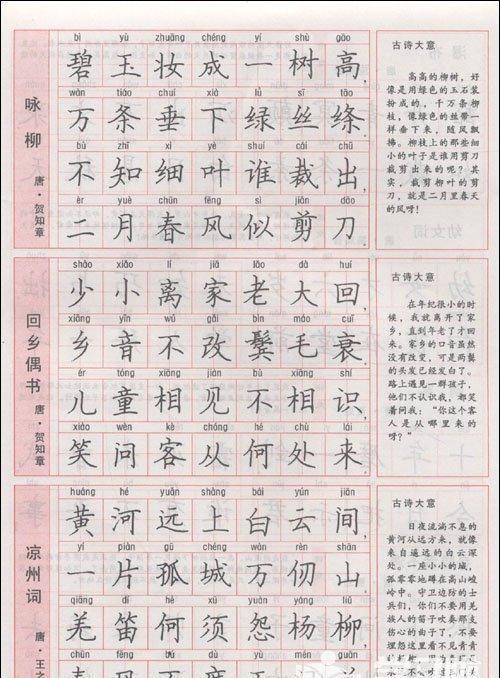 咏柳
唐·贺知章
bì yù zhuāng chéng yí shù gāo
碧玉妆成一树高,
wàn tiáo chuí xià lǜ sī tāo
万条垂下绿丝绦.
bù zhī xì yè shuí cái chū
不知细叶谁裁出,
èr yuè chūn fēng sì jiǎn dāo
二月春风似剪刀.
古诗大意
高高的柳树,好
像是用绿色的玉石装
扮成的,千万条柳
枝,像绿色的丝带一
样垂下来,随风飘
拂。柳枝上的那些细
小的叶子是谁用剪刀
裁剪出来的呢?其
实,裁剪柳叶的剪
刀,就是二月里春天
的风呀!
回乡偶书
唐·贺知章
shào xiǎo lí jiā lǎo dà huí
少小离家老大回,
xiāng yīn wú gǎi bìn máo cuī
乡音不改鬓毛衰.
ér tóng xiāng jiàn bù xiāng shí
儿童相见不相识,
xiào wèn kè chóng hé chù lái
笑问客从何处来.
古诗大意
在年纪很小的时
候,我就离开了家
乡,直到年老了才回
来。家乡的口音虽然
没有改变,可是两鬓
的头发已经发白了。
路上遇见一群孩子,
他们不认识我,都笑
着问我:“你这个客
人是从哪里来的
呀?”
凉州词
唐·王之
huáng hé yuǎn shàng bái yún jiān
黄河远上白云间,
yí piàn gū chéng wàn rèn shān
一片孤城万仞山.
qiāng dí hé xū yuàn yáng liǔ
羌笛何须怨杨柳,
chūn fēng bú dù yù mén guān
古诗大意
日夜流淌不息的
黄河从远方来,就像
来自遥远的白云深
处。一座小小的城,
孤零零地蹲在高山峻
岭中。守卫边防的士
兵们,你们不要用羌
族人的笛子吹奏那支
伤心的曲子了,不要
埋怨这里看不见青青